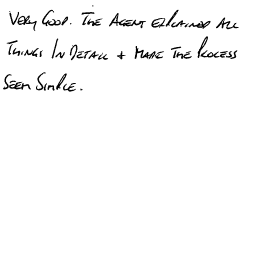 Very Good. The Agent explained all
things in detail + make the process
seem simple.